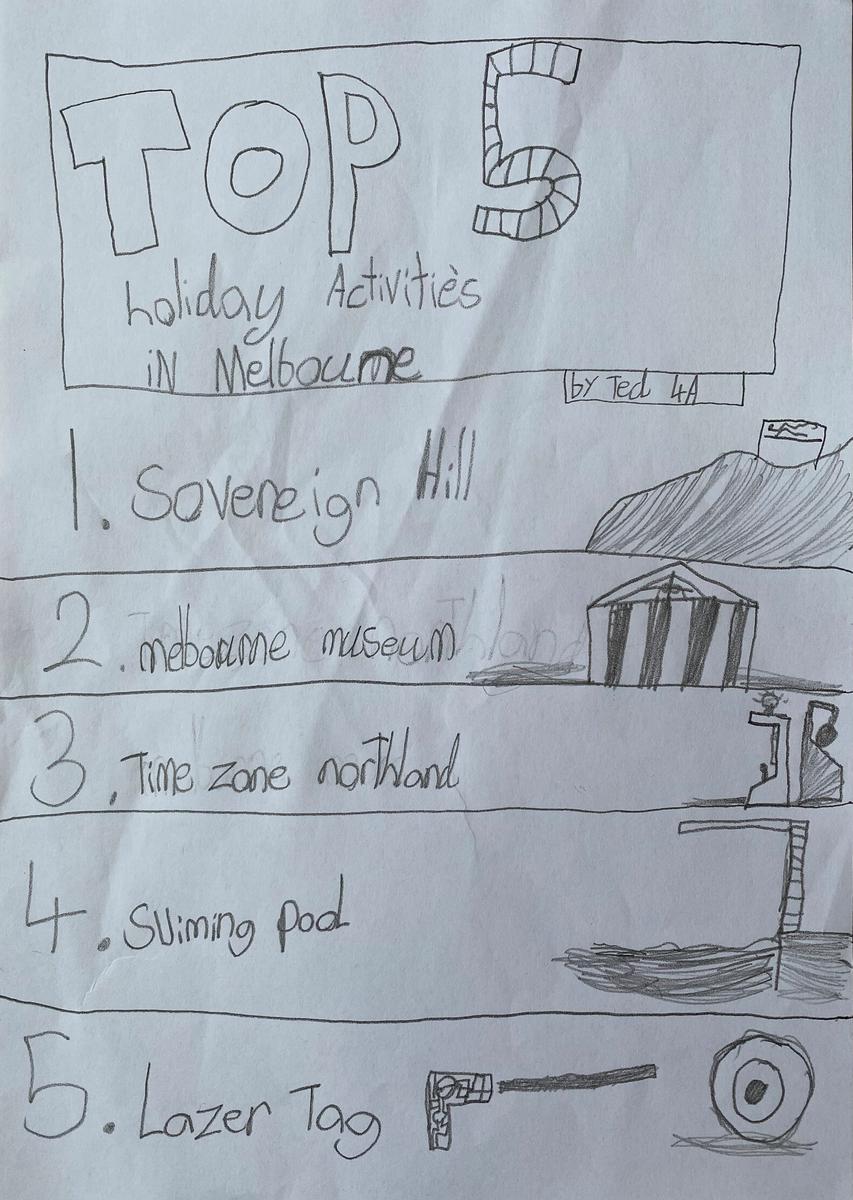 TOP 5
holiday Activities
iN Melbourne
by Ted 4A
1. Sovereign Hill
2. melbourne museum
3. Time zone northland
4. Swiming pool
5. Lazer Tag